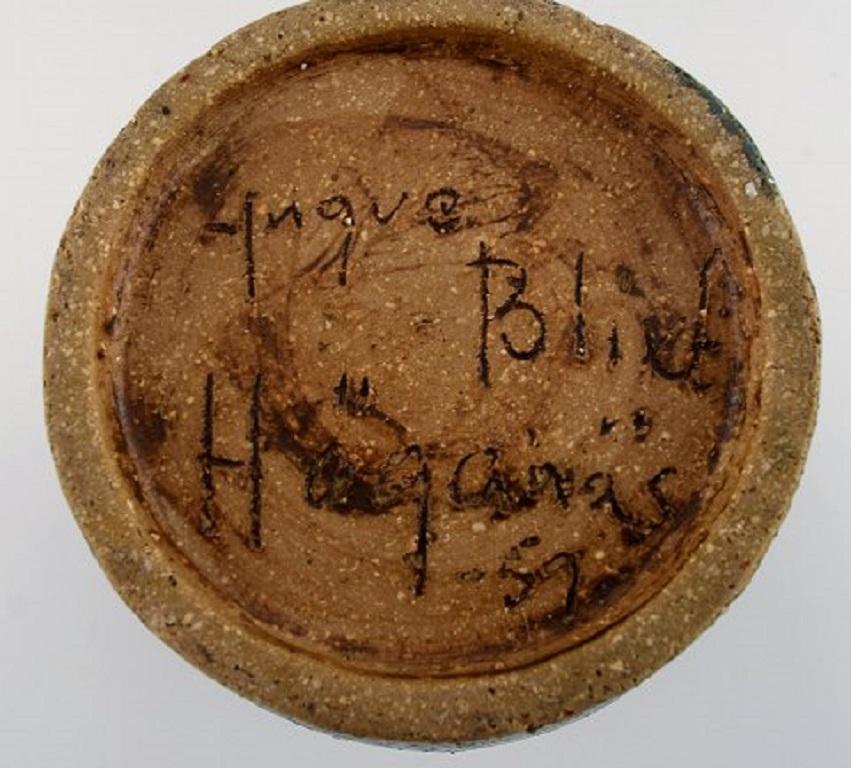 Yngve
Blixt
Höganäs
-59